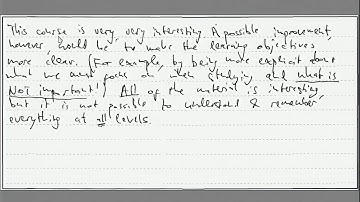 This course is very, very interesting. A possible improvement,
however, would be to make the learning objectives
more clear. (For example, by being more explicit about
what we must focus on when studying and what is
NOT important!) All of the material is interesting,
but it is not possible to understand & remember
everything at all levels.